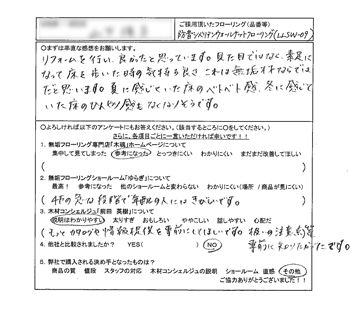 ご採用頂いたフローリング(品番等)
防音シベリアンウォールナットフローリング(LLSW-09)
◎まずは率直な感想をお願いします。
リフォームを行い、良かったと思っています。見た目ではなく、素足に
なって床を歩いた時の気持ち良さ、これは無垢材ならでは
だと思います。夏に感じていた床のベトベト感、冬に感じて
いた床のひんやり感もなくなりそうです。
◎よろしければ以下のアンケートにもお答えください。(該当するところに○をしてください)
さらに、各項目ごとに一言いただければ幸いです!!
1. 無垢フローリング専門店「木魂」ホームページについて
集中して見てしまった 参考になった とっつきにくい わかりにくい まだまだ改善してほしい
( )
2. 無垢フローリングショールーム「ゆらぎ」について
最高! 参考になった 他のショールームと変わらない わかりにくい(場所 / 商品が見にくい)
(4Fの急な階段で年配の人にはきびしいです。)
3. 木材コンシェルジュ「前田 英樹」について
説明はわかりやすい 太りすぎ おもしろい ややこしい 話しやすい 心配だ
(もっとカタログや情報提供を事前にしてほしいです。扱いの注意点等
事前に知りたかったです。)
4. 他社と比較されましたか? YES( ) NO
5. 弊社で購入される決め手となったものは?
商品の質 値段 スタッフの対応 木材コンシェルジュの説明 ショールーム 直感 その他
ご協力ありがとうございました!!